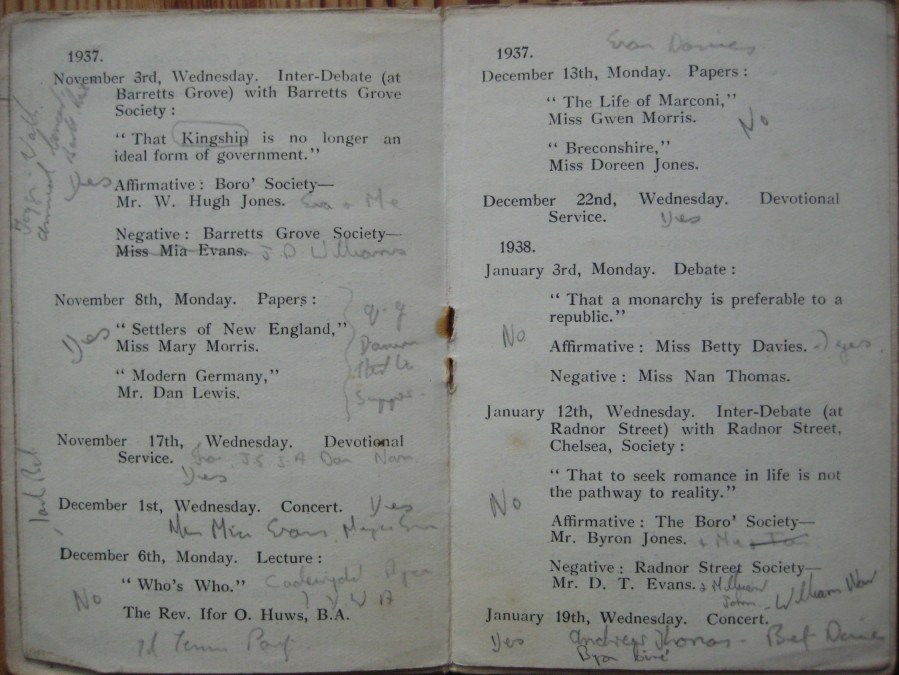 1937.
November 3rd, Wednesday. Inter-Debate (at
Barretts Grove) with Barretts Grove
Society :
" That Kingship is no longer an
ideal form of government."
Yes
Affirmative : Boro' Society—
Mr. W. Hugh Jones. Eva + Me
Negative : Barretts Grove Society—
Miss Mia Evans. J D Williams
November 8th, Monday. Papers :
Yes
" Settlers of New England,"
Miss Mary Morris.
" Modern Germany,"
Mr. Dan Lewis.
Supper
November 17th, Wednesday. Devotional
Service.
Yes
December 1st, Wednesday. Concert. Yes
Miss Evans
December 6th, Monday. Lecture :
" Who's Who."
No
The Rev. Ifor O. Huws, B.A.
Evan Davies
1937.
December 13th, Monday. Papers :
" The Life of Marconi,"
Miss Gwen Morris.
No
" Breconshire,"
Miss Doreen Jones.
December 22nd, Wednesday. Devotional
Service. Yes
1938.
January 3rd, Monday. Debate :
" That a monarchy is preferable to a
republic."
No
Affirmative : Miss Betty Davies. yes
Negative : Miss Nan Thomas.
January 12th, Wednesday. Inter-Debate (at
Radnor Street) with Radnor Street,
Chelsea, Society :
" That to seek romance in life is not
the pathway to reality."
No
Affirmative : The Boro' Society—
Mr. Byron Jones. + Me
Negative : Radnor Street Society—
Mr. D. T. Evans.
William
January 19th, Wednesday. Concert.
Yes Andrew Thomas - Bet Davies